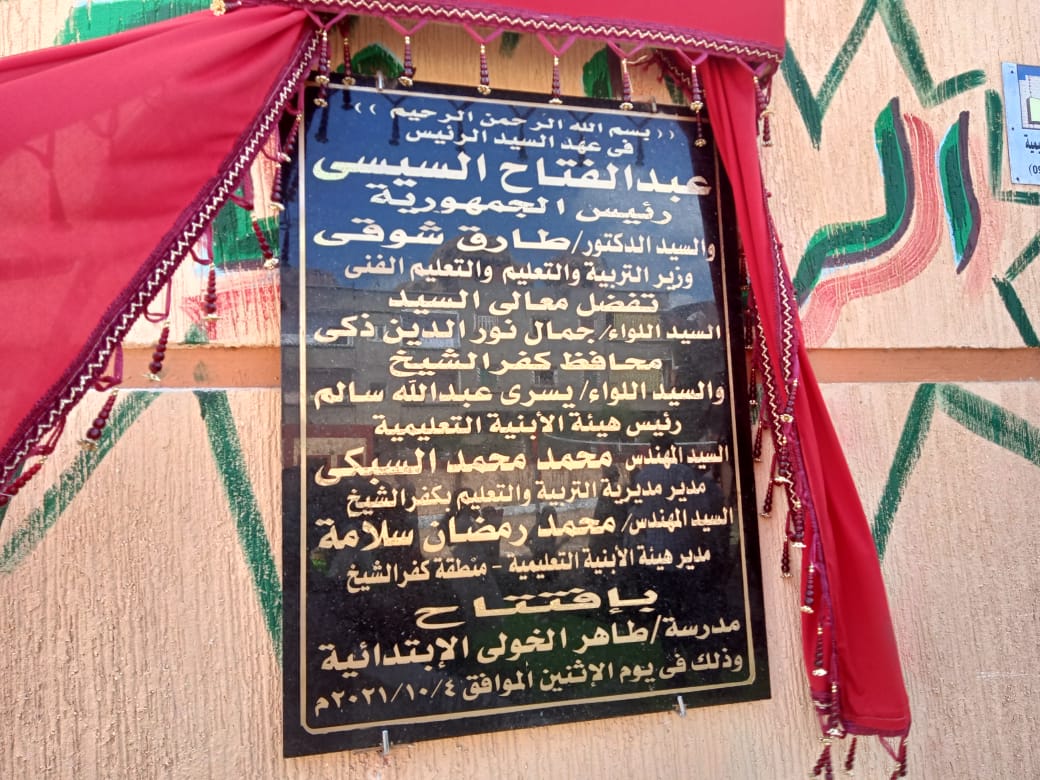 ((بسم الله الرحمن الرحيم))
فى عهد السيد الرئيس
عبدالفتاح السيسى
رئيس الجمهورية
والسيد الدكتور/طارق شوقى
وزير التربية والتعليم والتعليم الفنى
تفضل معالى السيد
السيد اللواء/جمال نور الدين ذكى
محافظ كفرالشيخ
والسيد اللواء/يسرى عبدالله سالم
رئيس هيئة الأبنية التعليمية
السيد المهندس محمد محمد السبكى
مدير مديرية التربية والتعليم بكفرالشيخ
السيد المهندس/محمد رمضان سلامة
مدير هيئة الأبنية التعليمية - منطقة كفرالشيخ
بإفتتاح
مدرسة/طاهر الخولى الإبتدائية
وذلك فى يوم الإثنين الموافق ٢٠٢١/١٠/٤م